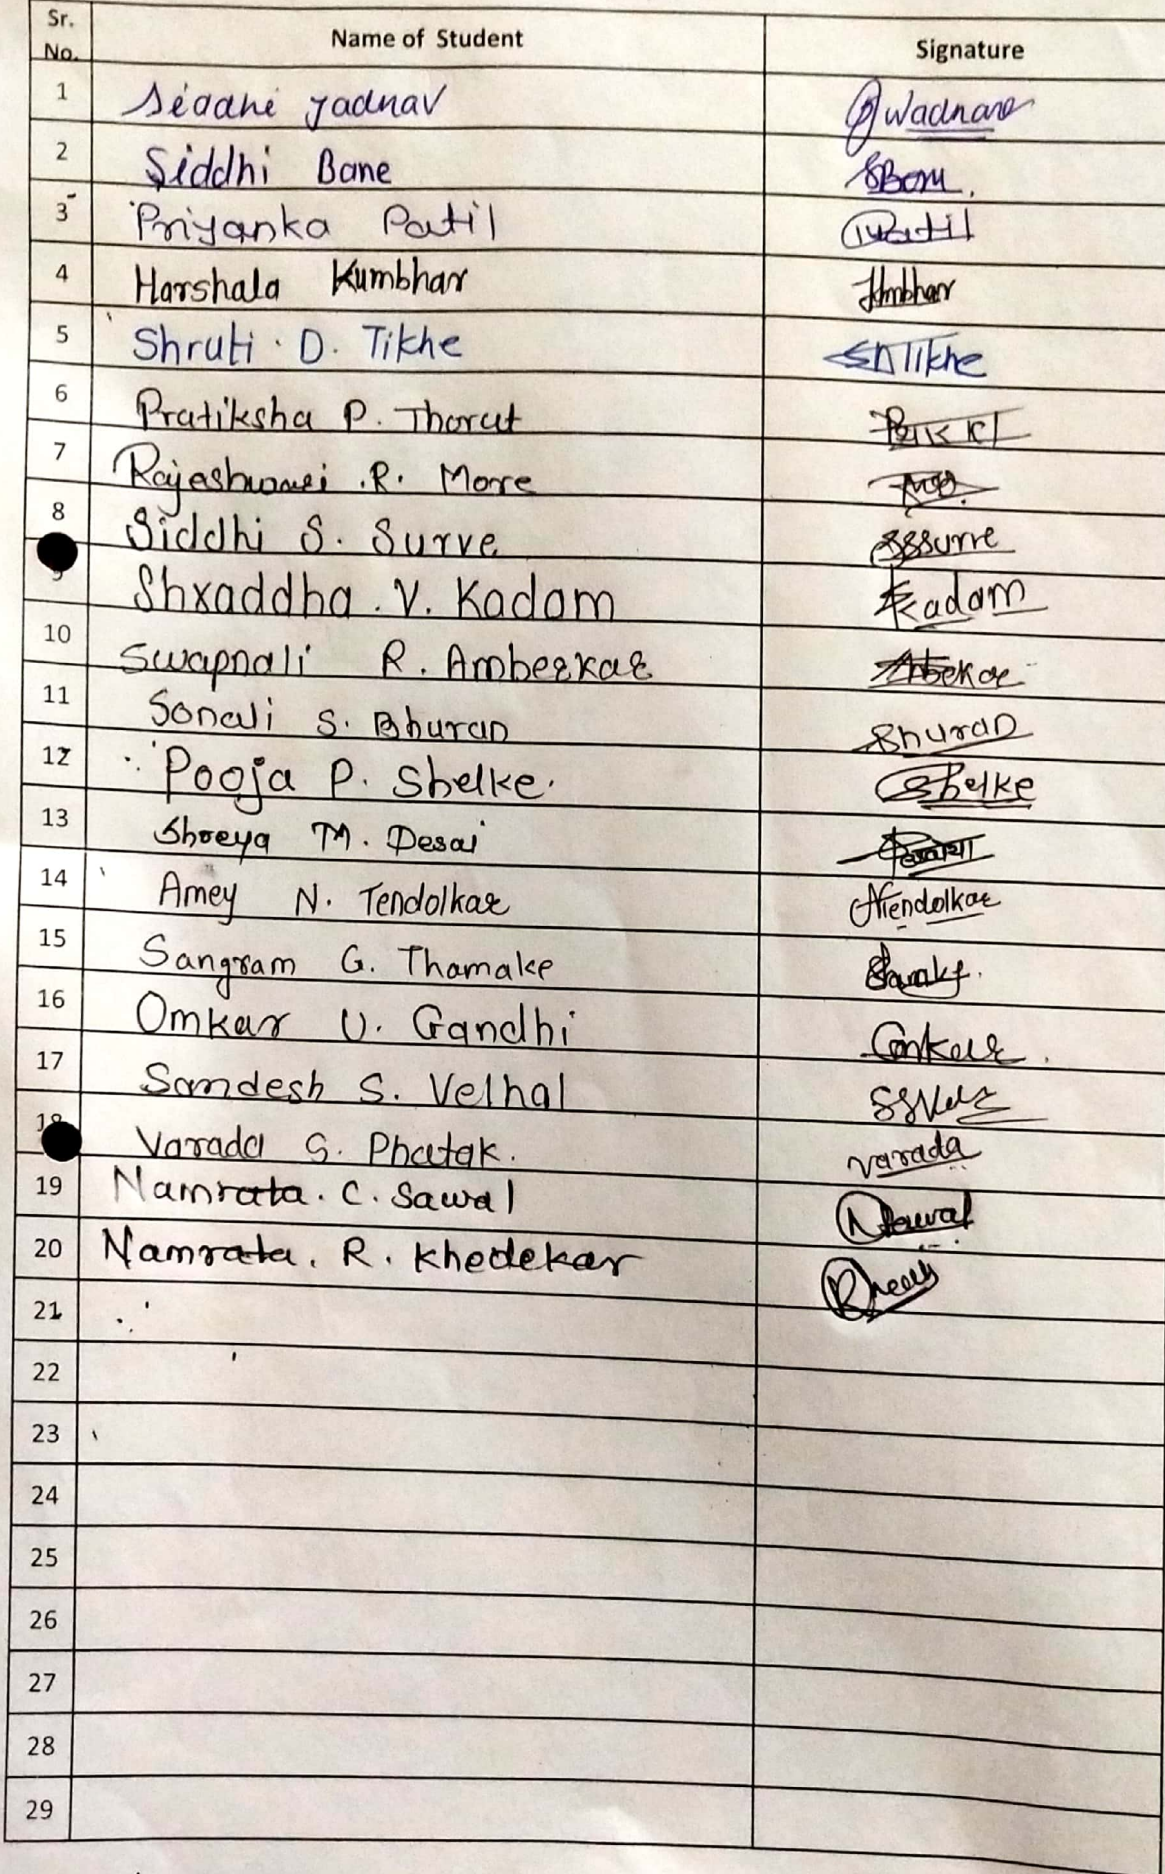 Sr. No. Name of Student Signature
1 Siddhi Jadhav
2 Siddhi Bane
3 Priyanka Patil Patil
4 Harshala Kumbhar
5 Shruti . D. Tikhe SDTikhe
6 Pratiksha P. Thorat
7 Rajeshwari .R. More
8 Siddhi S. Surve SSSurve
9 Shraddha . V. Kadam Kadam
10 Swapnali R. Amberkar
11 Sonali S. Bhuran Bhuran
12 Pooja P. Shelke. Shelke
13 Shreya M. Desai
14 Amey N. Tendolkar ANTendolkar
15 Sangram G. Thamake
16 Omkar U. Gandhi Omkar
17 Sandesh S. Velhal
18 Varada S. Phatak. varada
19 Namrata . C. Sawal
20 Namrata . R. Khedekar
21
22
23
24
25
26
27
28
29